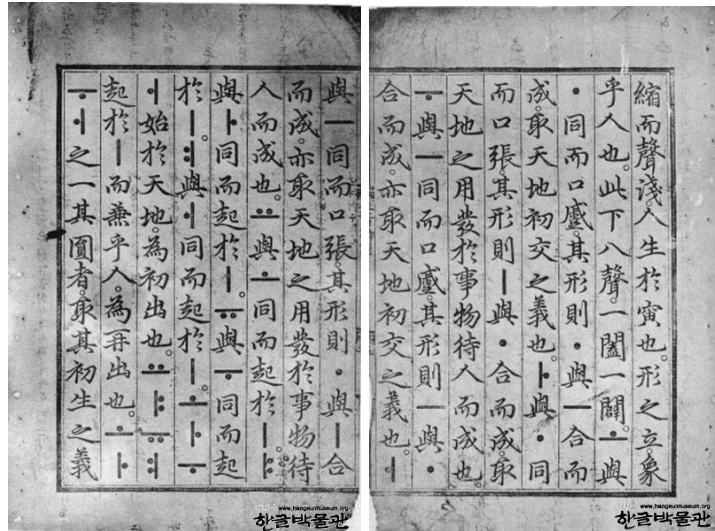 縮而聲淺。人生於寅也。形之立。象
乎人也。此下八聲。一闔一闢。ㅗ與
ㆍ同而口蹙。其形則ㆍ與ㅡ合而
成。取天地初交之義也。ㅏ與ㆍ同
而口張。其形則ㅣ與ㆍ合而成。取
天地之用發於事物待人而成也。
ㅜ與ㅡ同而口蹙。其形則ㅡ與ㆍ
合而成。亦取天地初交之義也。ㅓ
與ㅡ同而口張。其形則ㆍ與ㅣ合
而成。亦取天地之用發於事物待
人而成也。ㅛ與ㅗ同而起於ㅣ。ㅑ
與ㅏ同而起於ㅣ。ㅠ與ㅜ同而起
於ㅣ。ㅕ與ㅓ同而起於ㅣ。ㅗㅏㅜ
ㅓ始於天地。為初出也。ㅛㅑㅠㅕ
起於ㅣ而兼乎人。為再出也。ㅗㅏ
ㅜㅓ之一其圓者。取其初生之義
www.hangeulmuseum.org
한글박물관
www.hangeulmuseum.org
한글박물관